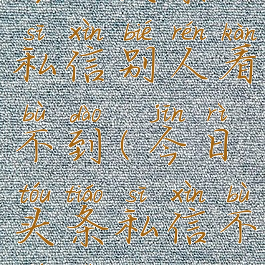 sī xìn bié rén kàn
私信别人看
bù dào jīn rì
不到(今日
tóu tiáo sī xìn bù
头条私信不